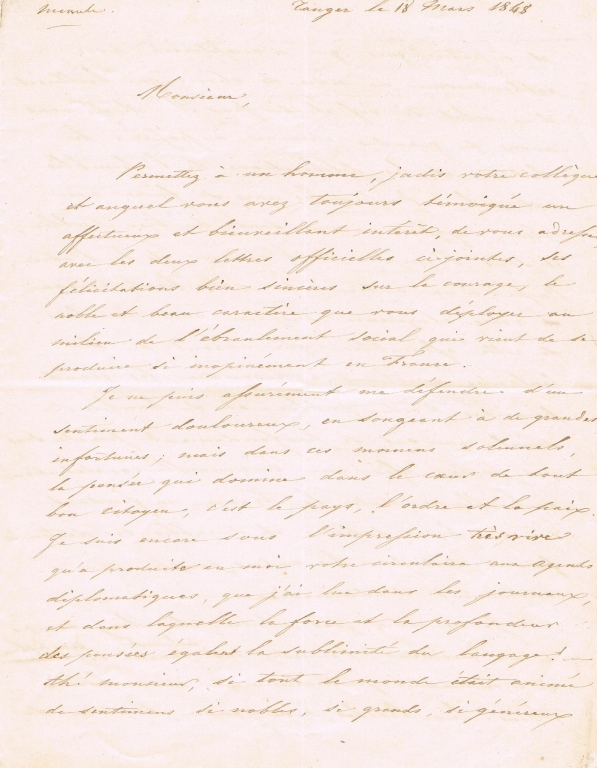 Minute. Tanger le 18 Mars 1848
Monsieur,
Permettez à un homme, jadis votre collègue
et auquel vous avez toujours témoigné un
affectueux et bienveillant intérêt, de vous adresser
avec les deux lettres officielles ci-jointes, ses
félicitations bien sincères sur le courage, le
noble et beau caractère que vous déployez au
milieu de l'ébranlement social qui vient de se
produire si inopinément en France.
Je ne puis assurément me défendre d'un
sentiment douloureux, en songeant à de grandes
infortunes; mais dans ces momens solennels,
la pensée qui domine dans le cœur de tout
bon citoyen, c'est le pays, l'ordre et la paix.
Je suis encore sous l'impression très vive
qu'a produite en moi, votre circulaire aux agents
diplomatiques, que j'ai lue dans les journaux,
et dans laquelle la force et la profondeur
des pensées égalent la sublimité du langage! —
Ah! monsieur, si tout le monde était animé
de sentimens si nobles, si grands, si généreux